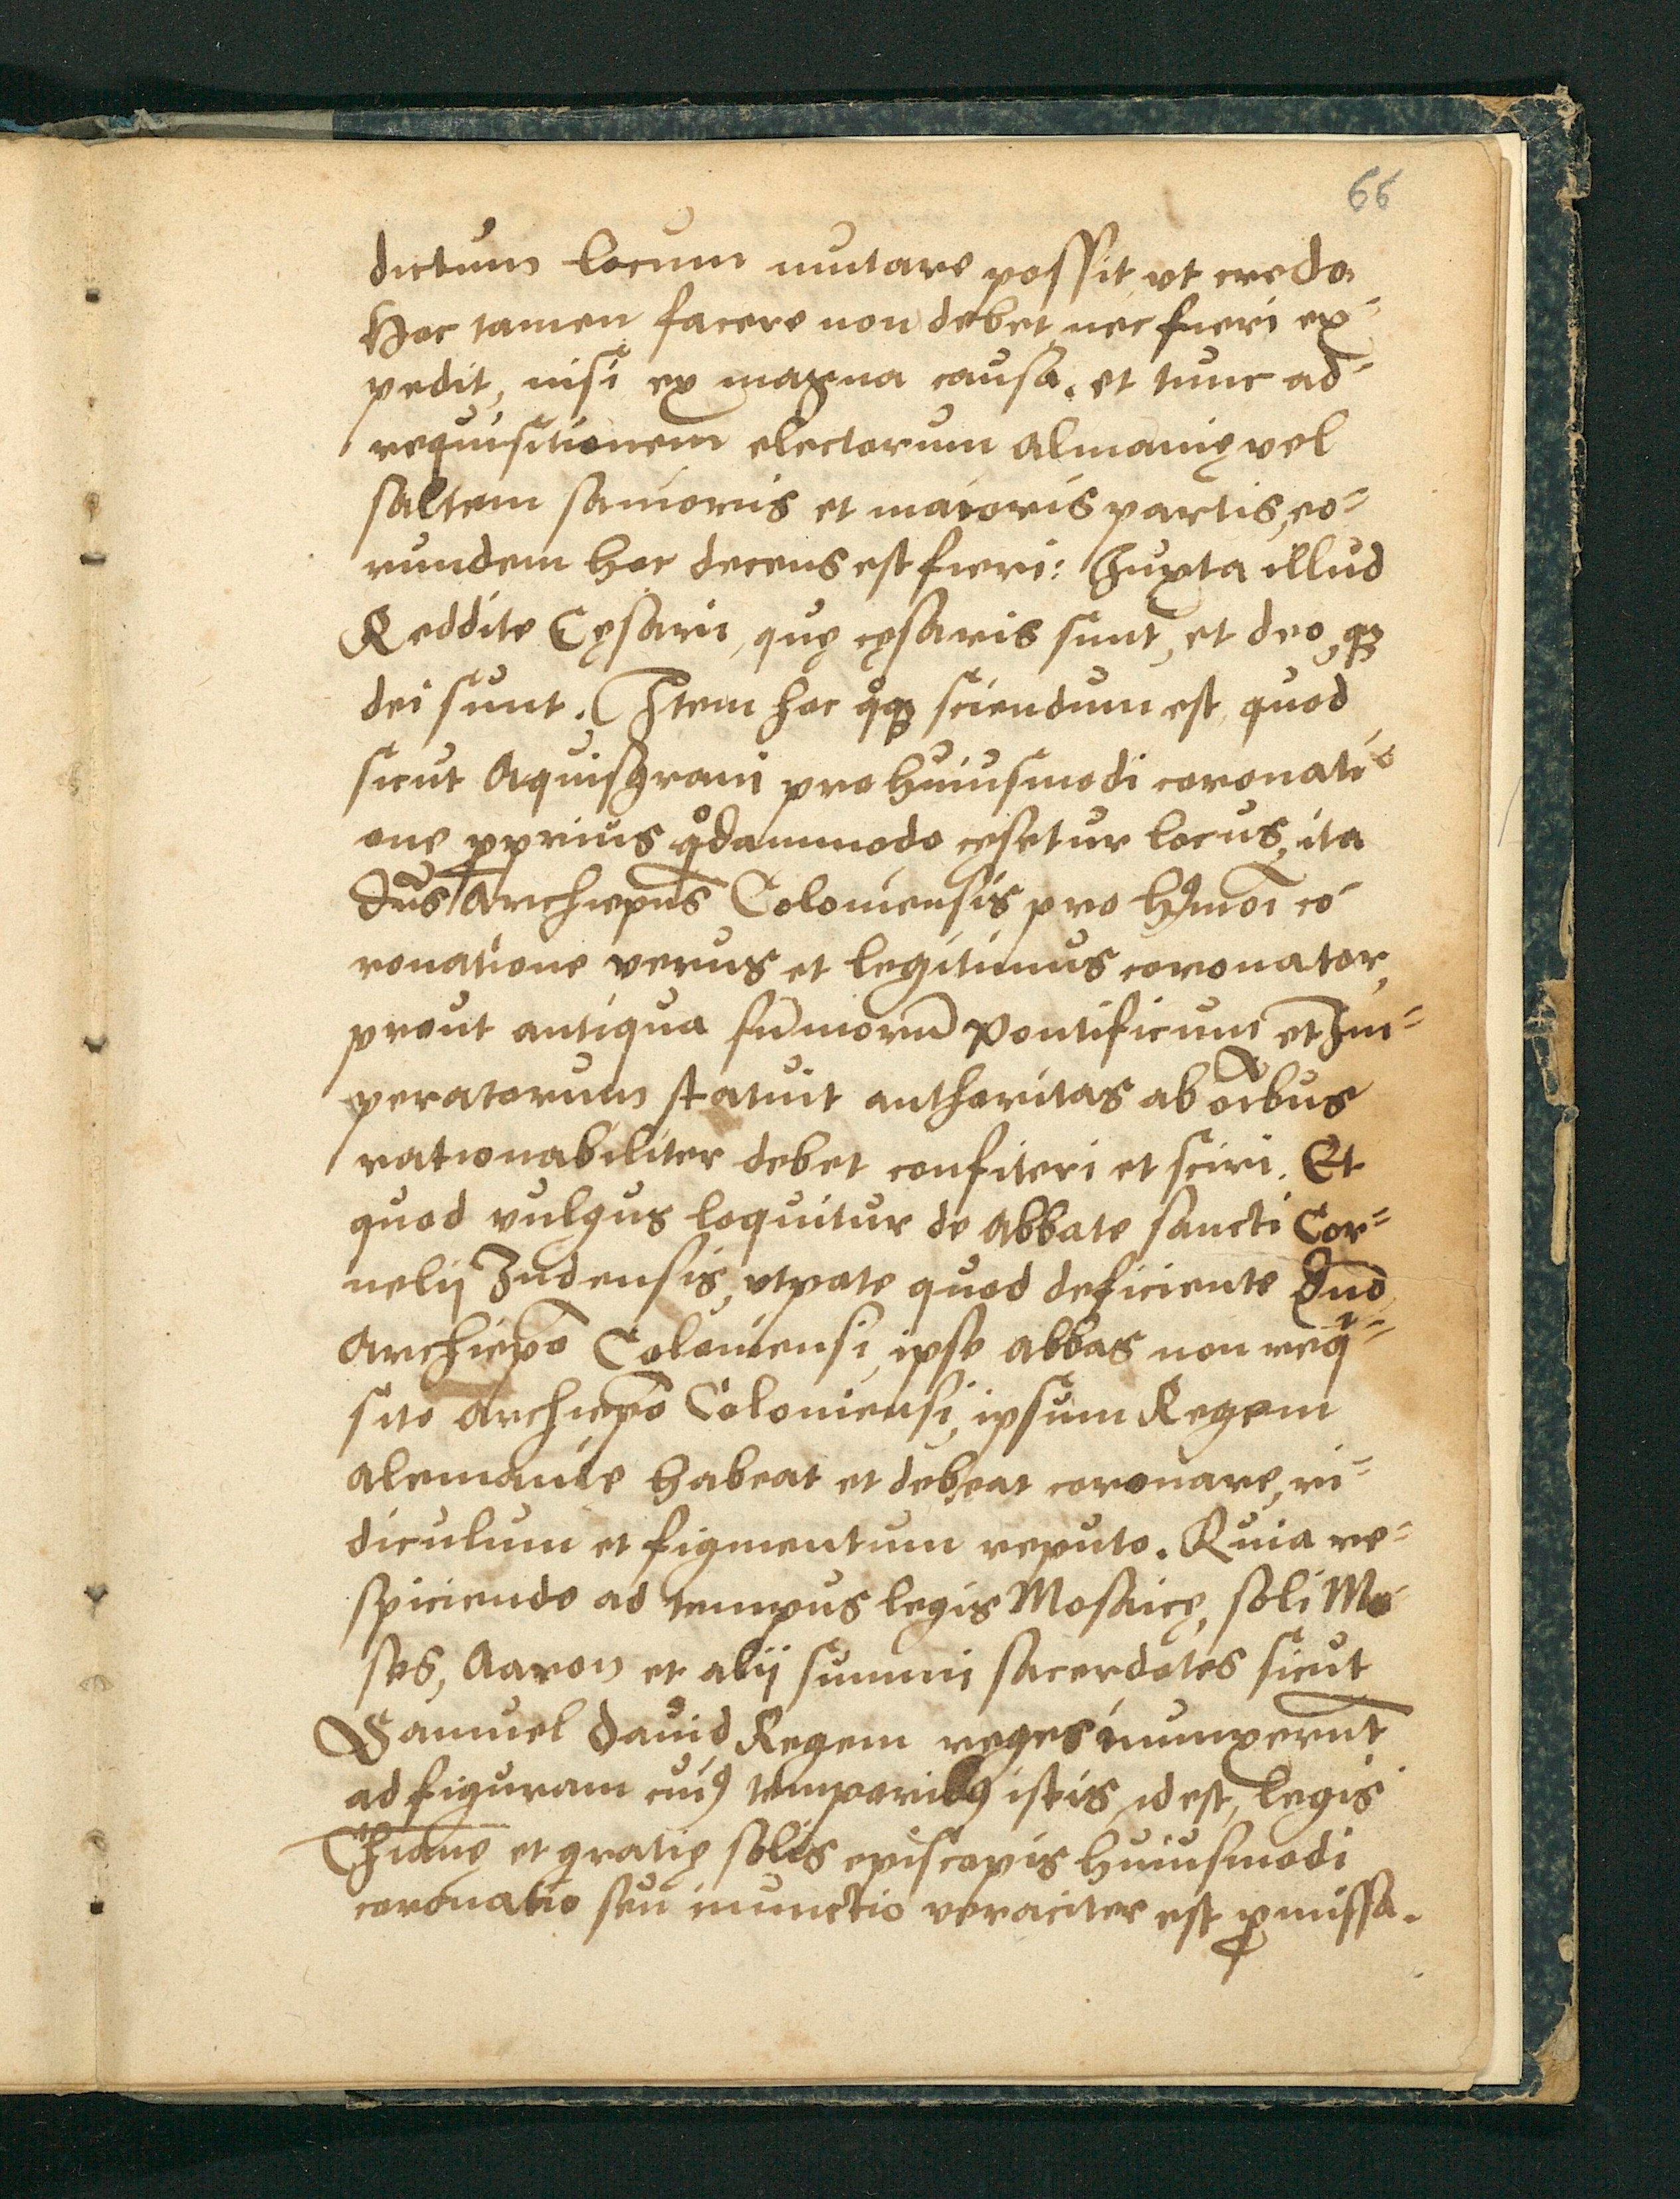 66
dictum locum mutare possit vt credo
Hoc tamen facere non debet, nec fieri ex¬
pedit, nisi ex magna causa. et tunc ad¬
requisitionem electorum Almanię vel
saltem sanioris et maioris partis, eo¬
rundem hoc decens est fieri: Juxta illud
Reddite Cęsari, quę cęsaris sunt, et deo, qꝫ
dei sunt. Item hoc qͦqꝫ sciendum est, quod
sicut Aquisgrani pro huiusmodi coronati¬
one ꝓprius qͦdammodo cęsetur locus, ita
Dn̄s Archiep̄us Coloniensis pro hꝰmōi co¬
ronatione verus et legitimus coronator,
prout antiqua sum̄orū Pontificum et Im¬
peratorum statuit authoritas ab oībus
rationabiliter debet confiteri et sciri. Et
quod vulgus loquitur de Abbate sancti Cor¬
nelij Indensis, vtpote quod deficiente Dn̄o
Archiep̄o Coloniensi, ipse abbas non reqͥ¬
sito Archiep̄o Coloniensi, ipsum Regem
Alemanie habeat et debeat coronare, ri¬
diculum et figmentum reputo. Quia re¬
spiciendo ad tempus legis Mosaicę, soli Mo¬
ses, Aaron et alij summi sacerdotes sicut
Samuel Dauid Regem reges inunxerūt
ad figuram cuiꝰ temporibꝰ istis, id est, legis
Chr̄ianę et gratię solis episcopis huiusmodi
coronatio seu inunctio veraciter est ꝓmissa.